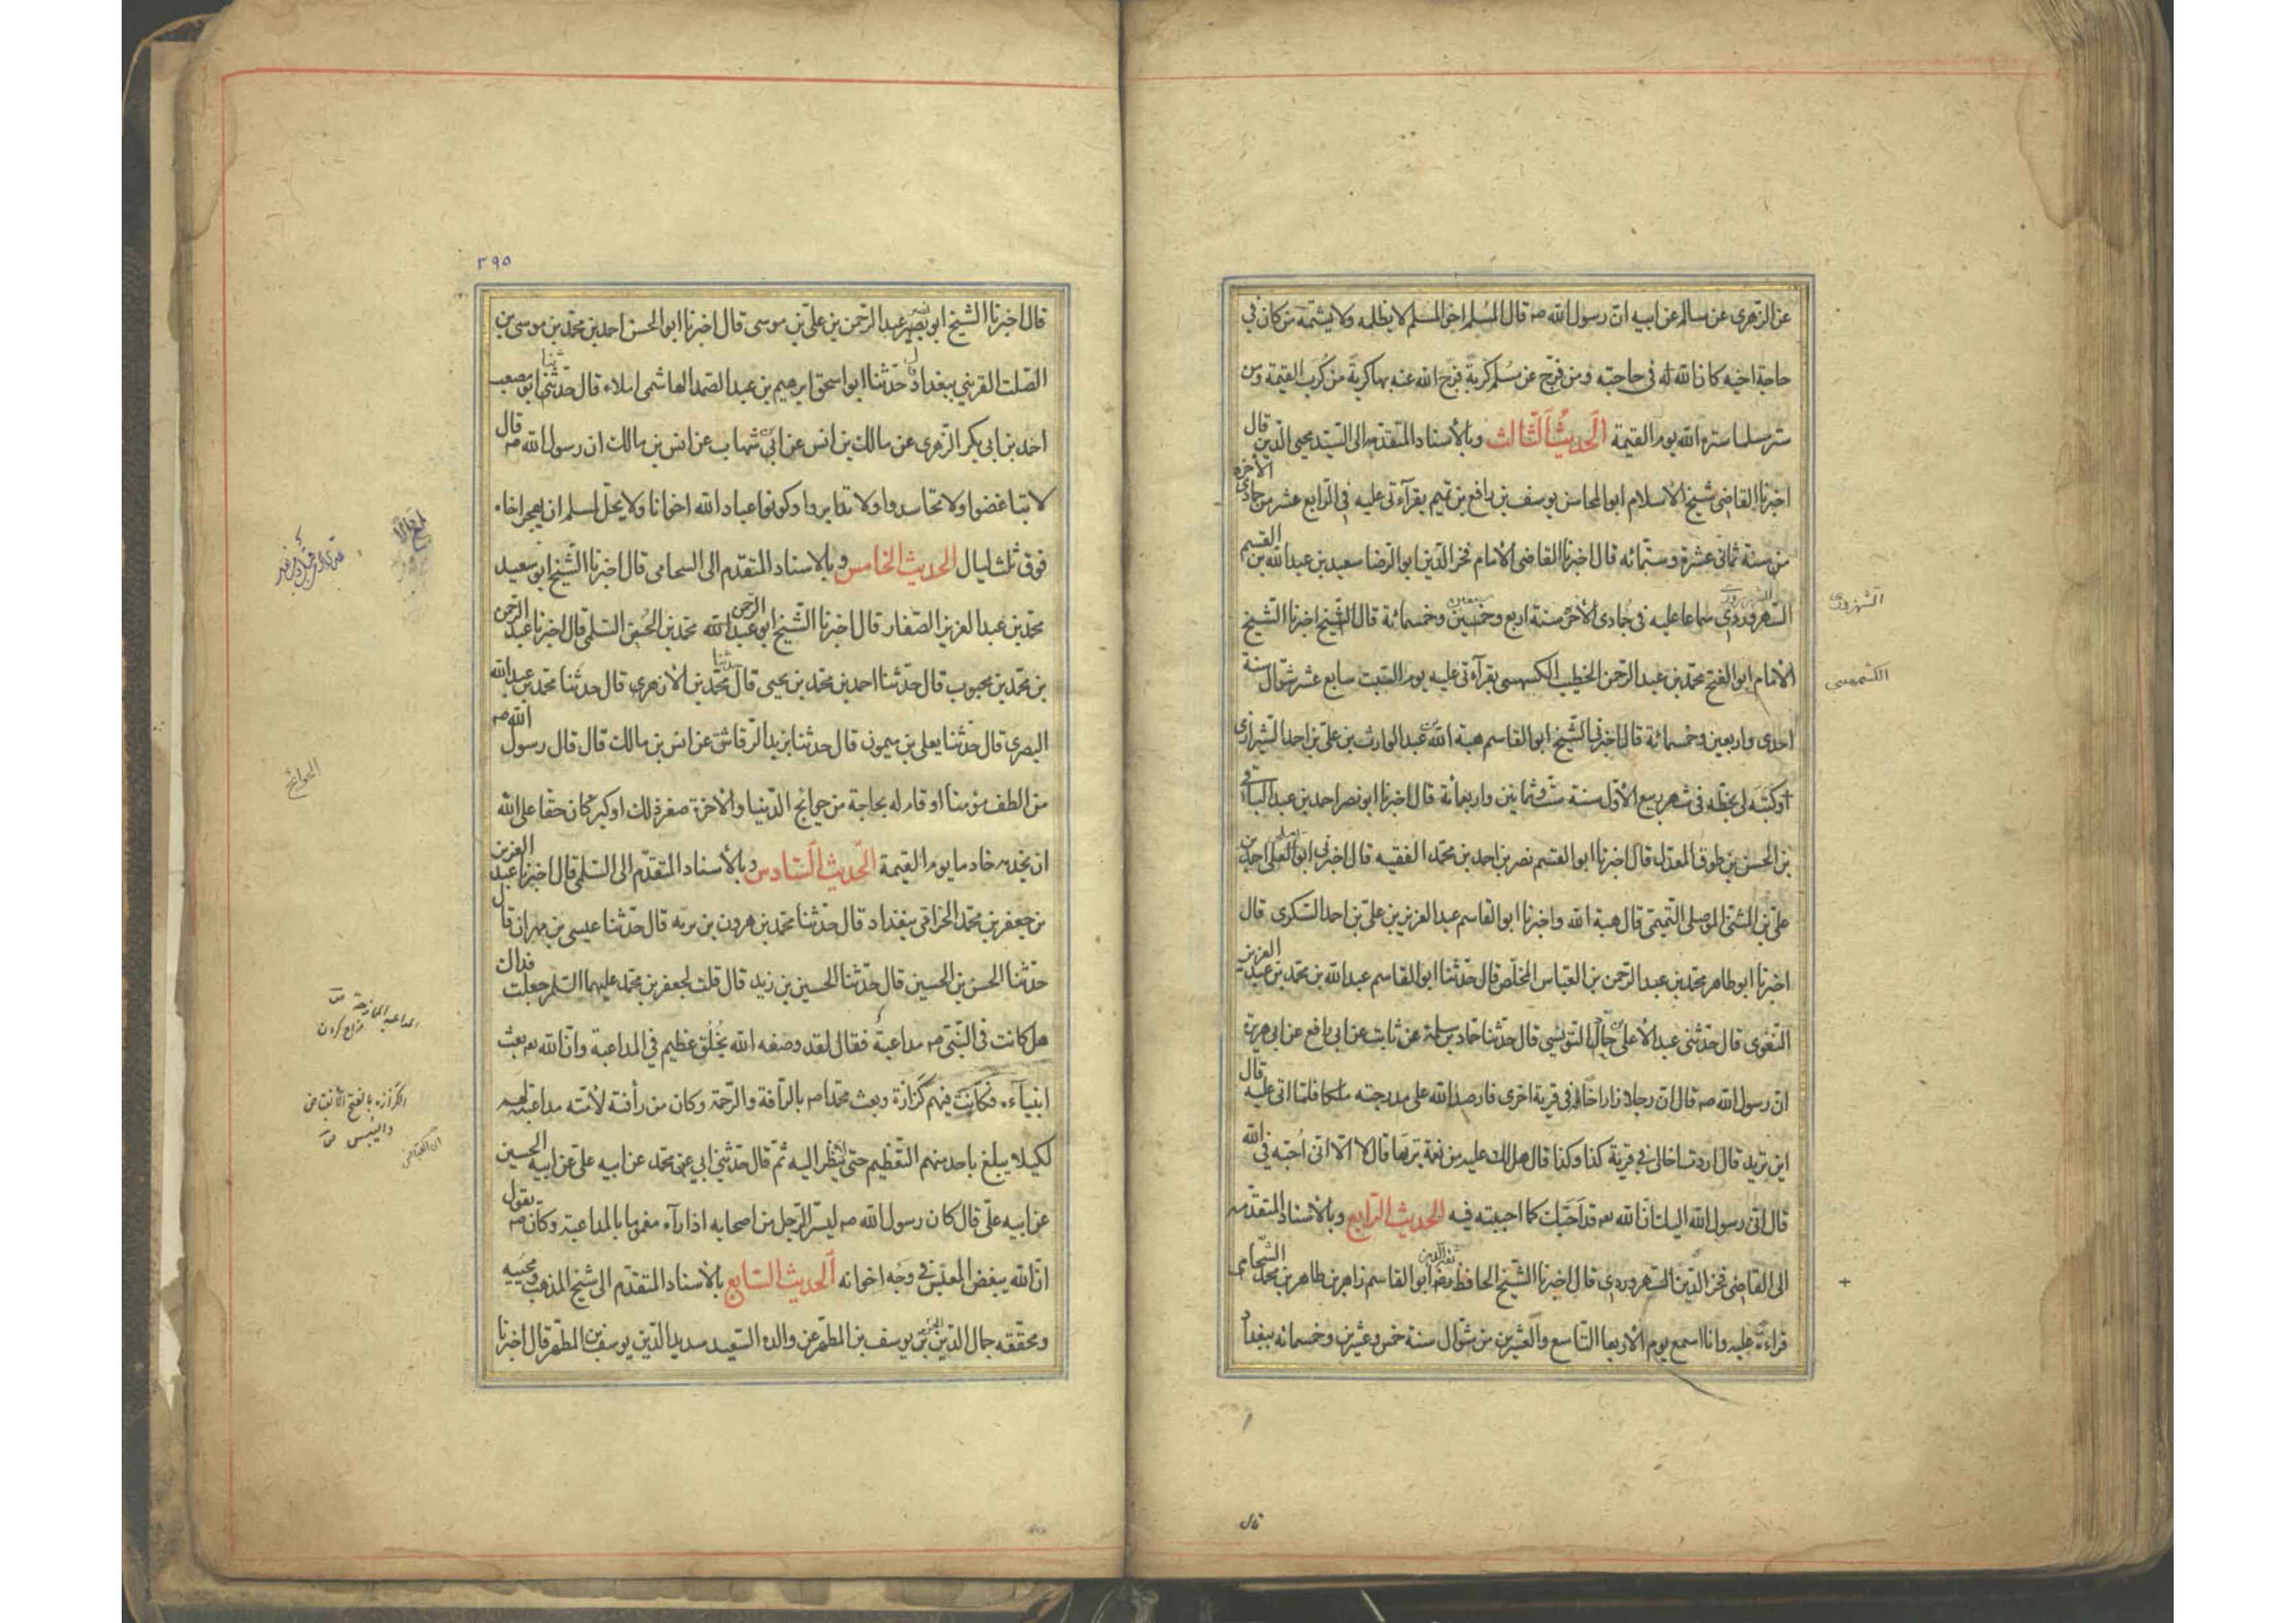 عن الزهرى عن سالم عن ابيه ان رسول الله صه قال المسلم اخو المسلم لا يظلمه ولا يشتمه من كان فى
حاجة اخيه كان الله له فى حاجته ومن فرج عن مسلم كربة فرج الله عنه بها كربة من كرب القيمة ومن
ستر مسلما ستره الله يوم القيمة الحديث الثالث وبالاسناد المتقدم الى السيد محيى الدين قال
اخبرنا القاضى شيخ الاسلام ابو المحاسن يوسف بن رافع بن تميم بقرآءتى عليه فى الرابع عشر من جمادى الآخرة
من سنة ثمانى عشرة وستمائه قال اخبرنا القاضى الامام فخر الدين ابو الرضا سعيد بن عبد الله بن القسم
السهروردى سماعا عليه فى جمادى الآخر سنة اربع وخمسين وخمسمائة قال الشيخ اخبرنا الشيخ
الامام ابو الفتح محمد بن عبد الرحمن الخطيب بقرآءتى عليه يوم السبت سابع عشر شوال سنة
احدى واربعين وخمسمائة قال اخبرنى الشيخ ابو القاسم هبة الله بن عبد الوارث بن على بن احمد الشيرازى
وكتبه لى بخطه فى شهر ربيع الاول سنة ست وثمانين واربعمائة قال اخبرنا ابو نصر احمد بن عبد الباقى
بن الحسن بن طوق المعدل قال اخبرنا ابو القسم نصر بن احمد بن محمد الفقيه قال اخبرنى ابو يعلى احمد بن
على بن المثنى الموصلى التميمى قال هبة الله واخبرنا ابو القاسم عبد العزيز بن على بن احمد السكرى قال
اخبرنا ابو طاهر محمد بن عبد الرحمن بن العباس المخلص قال حدثنا ابو القاسم عبد الله بن محمد بن عبد العزيز
البغوى قال حدثنى عبد الاعلى بن حماد النرسى قال حدثنا حماد بن سلمة عن ثابت عن ابى رافع عن ابى هريرة
ان رسول الله صه قال ان رجلا زار اخا له فى قرية اخرى فارصد الله على مدرجته ملكا فلما اتى عليه قال
اين تريد قال اردت اخا لى فى قرية كذا وكذا قال هل لك عليه من نعمة تربها قال لا الا انى احبه فى الله
قال انى رسول الله اليك ان الله تعه قد احبك كما احببته فيه الحديث الرابع وبالاسناد المتقدم
الى القاضى فخر الدين السهروردى قال اخبرنا الشيخ الحافظ ابو القاسم زاهر بن طاهر بن محمد الشحامى
قراءة عليه وانا اسمع يوم الاربعا التاسع والعشرين من شوال سنة خمس وعشرين وخمسمائه ببغداد
الشهرزورى
الكشميهنى
قال
٢٩٥
قال اخبرنا الشيخ ابو نصر عبد الرحمن بن على بن موسى قال اخبرنا ابو الحسن احمد بن محمد بن موسى بن
الصلت القرشى ببغداد قال حدثنا ابو اسحق ابرهيم بن عبد الصمد الهاشمى املاء قال حدثنا ابو مصعب
احمد بن ابى بكر الزهرى عن مالك بن انس عن ابن شهاب عن انس بن مالك ان رسول الله صه قال
لا تباغضوا ولا تحاسدوا ولا تدابروا وكونوا عباد الله اخوانا ولا يحل لمسلم ان يهجر اخاه
فوق ثلث ليال الحديث الخامس وبالاسناد المتقدم الى الشحامى قال اخبرنا الشيخ ابو سعيد
محمد بن عبد العزيز الصفار قال اخبرنا الشيخ ابو عبد الرحمن محمد بن الحسين السلمى قال اخبرنا عبد الرحمن
بن محمد بن محبوب قال حدثنا احمد بن محمد بن يحيى قال حدثنا محمد بن الازهرى قال حدثنا محمد بن عبد الله
البصرى قال حدثنا يعلى بن ميمون قال حدثنا يزيد الرقاشى عن انس بن مالك قال قال رسول الله صه
من الطف مؤمنا او قام له بحاجة من حوائج الدنيا والآخرة صغر ذلك او كبر كان حقا على الله
ان يخدمه خادما يوم القيمة الحديث السادس وبالاسناد المتقدم الى السلمى قال اخبرنا عبد العزيز
بن جعفر بن محمد الخرقى ببغداد قال حدثنا محمد بن هرون بن بريه قال حدثنا عيسى بن مهران قال
حدثنا الحسن بن الحسين قال حدثنا الحسين بن زيد قال قلت لجعفر بن محمد عليهما السلم جعلت فداك
هل كانت فى النبى صه مداعبة فقال لقد وصفه الله بخلق عظيم فى المداعبة وان الله تعه بعث
انبيآءه فكانت فيهم كزازة وبعث محمدا صه بالرأفة والرحمة وكان من رأفته لامته مداعبته لهم
لكيلا يبلغ باحد منهم التعظيم حتى لا ينظر اليه ثم قال حدثنى ابى محمد عن ابيه على عن ابيه الحسين
عن ابيه على قال كان رسول الله صه ليسر الرجل من اصحابه اذا رآه مغموما بالمداعبة وكان صه يقول
ان الله يبغض المعبس فى وجه اخوانه الحديث السابع بالاسناد المتقدم الى شيخ المذهب ومحييه
ومحققه جمال الدين الحسن بن يوسف بن المطهر عن والده السعيد سديد الدين يوسف بن المطهر قال اخبرنا
الحوائج
المداعبة الممازحة
مزاح كردن
الكزازة بالفتح الانقباض
واليبس